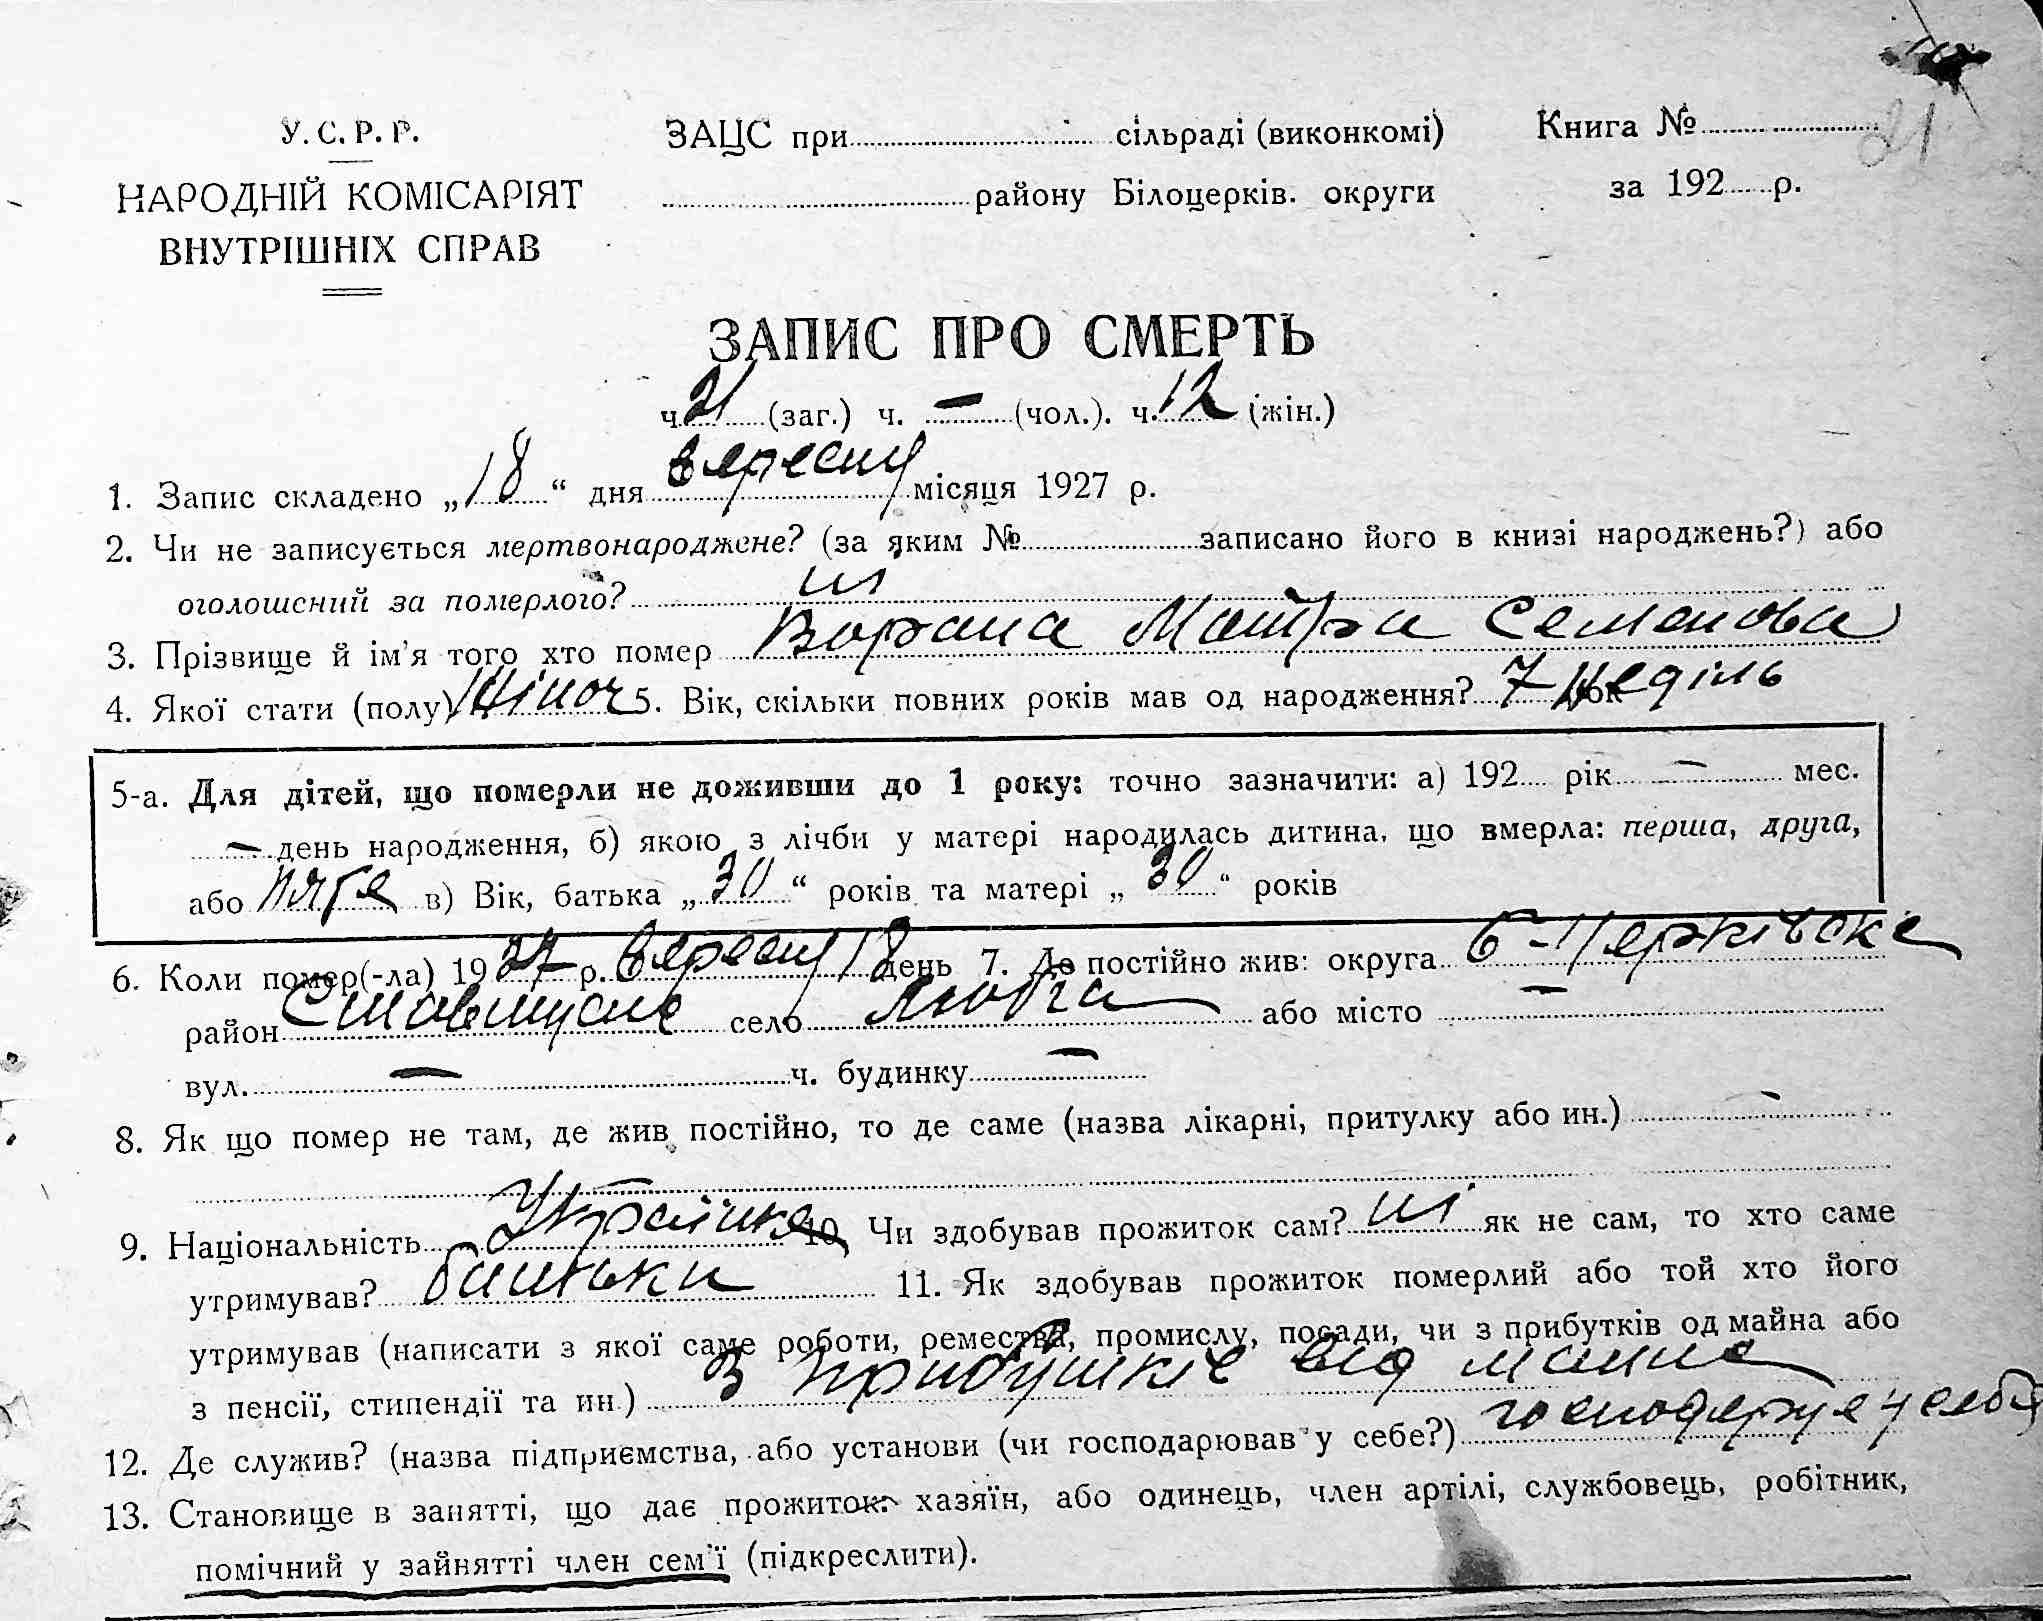 У. С. Р. Р.
НАРОДНІЙ КОМІСАРІЯТ
ВНУТРІШНІХ СПРАВ
ЗАЦС при сільраді (виконкомі)
району Білоцерків. округи
Книга №
21
за 192 р.
ЗАПИС ПРО СМЕРТЬ
ч. 21 (заг.) ч. — (чол.). ч. 12 (жін.)
1. Запис складено „18“ дня вересня місяця 1927 р.
2. Чи не записується мертвонароджене? (за яким № записано його в книзі народжень?) або
оголошений за померлого? ні
3. Прізвище й ім'я того хто помер Ворона Мотря Семенова
4. Якої стати (полу) жіноч 5. Вік, скільки повних років мав од народження? 7 неділь
5-а. Для дітей, що померли не доживши до 1 року: точно зазначити: а) 192 рік — мес.
— день народження, б) якою з лічби у матері народилась дитина, що вмерла: перша, друга,
або в) Вік, батька „30“ років та матері „30“ років
6. Коли помер(-ла) 1927 р. вересня 18 день 7. Де постійно жив: округа Б-Церківська
район село або місто —
вул. — ч. будинку —
8. Як що помер не там, де жив постійно, то де саме (назва лікарні, притулку або ин.) —
9. Національність Українка 10. Чи здобував прожиток сам? ні як не сам, то хто саме
утримував? батьки 11. Як здобував прожиток померлий або той хто його
утримував (написати з якої саме роботи, ремества, промислу, посади, чи з прибутків од майна або
з пенсії, стипендії та ин.) з прибутків від майна
12. Де служив? (назва підприємства, або установи (чи господарював у себе?) господарює у себе
13. Становище в занятті, що дає прожиток: хазяїн, або одинець, член артілі, службовець, робітник,
помічний у зайнятті член сем'ї (підкреслити).